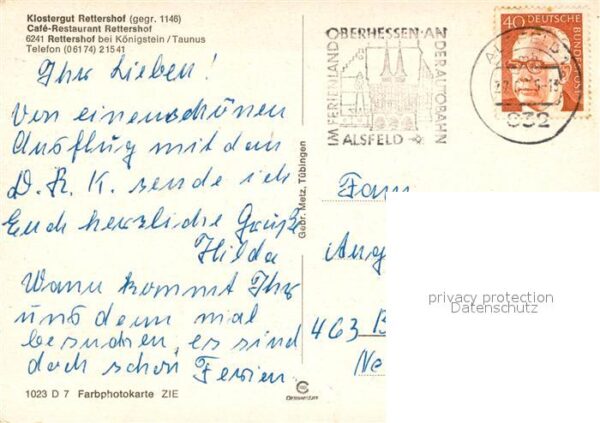 Klostergut Rettershof (gegr. 1146)
Café-Restaurant Rettershof
6241 Rettershof bei Königstein / Taunus
Telefon (06174) 21541
Ihr Lieben!
Von einem schönen
Ausflug mit dem
D. R. K. sende ich
Euch herzliche Grüße
Hilda
Wann kommt Ihr
uns denn mal
besuchen, es sind
doch schon Ferien.
1023 D 7 Farbphotokarte ZIE
Gebr. Metz, Tübingen
IM FERIENLAND
OBERHESSEN·AN
DER AUTOBAHN
ALSFELD
40 DEUTSCHE
BUNDESPOST
ALSFELD
632
Fam
463 B
Ne
privacy protection
Datenschutz